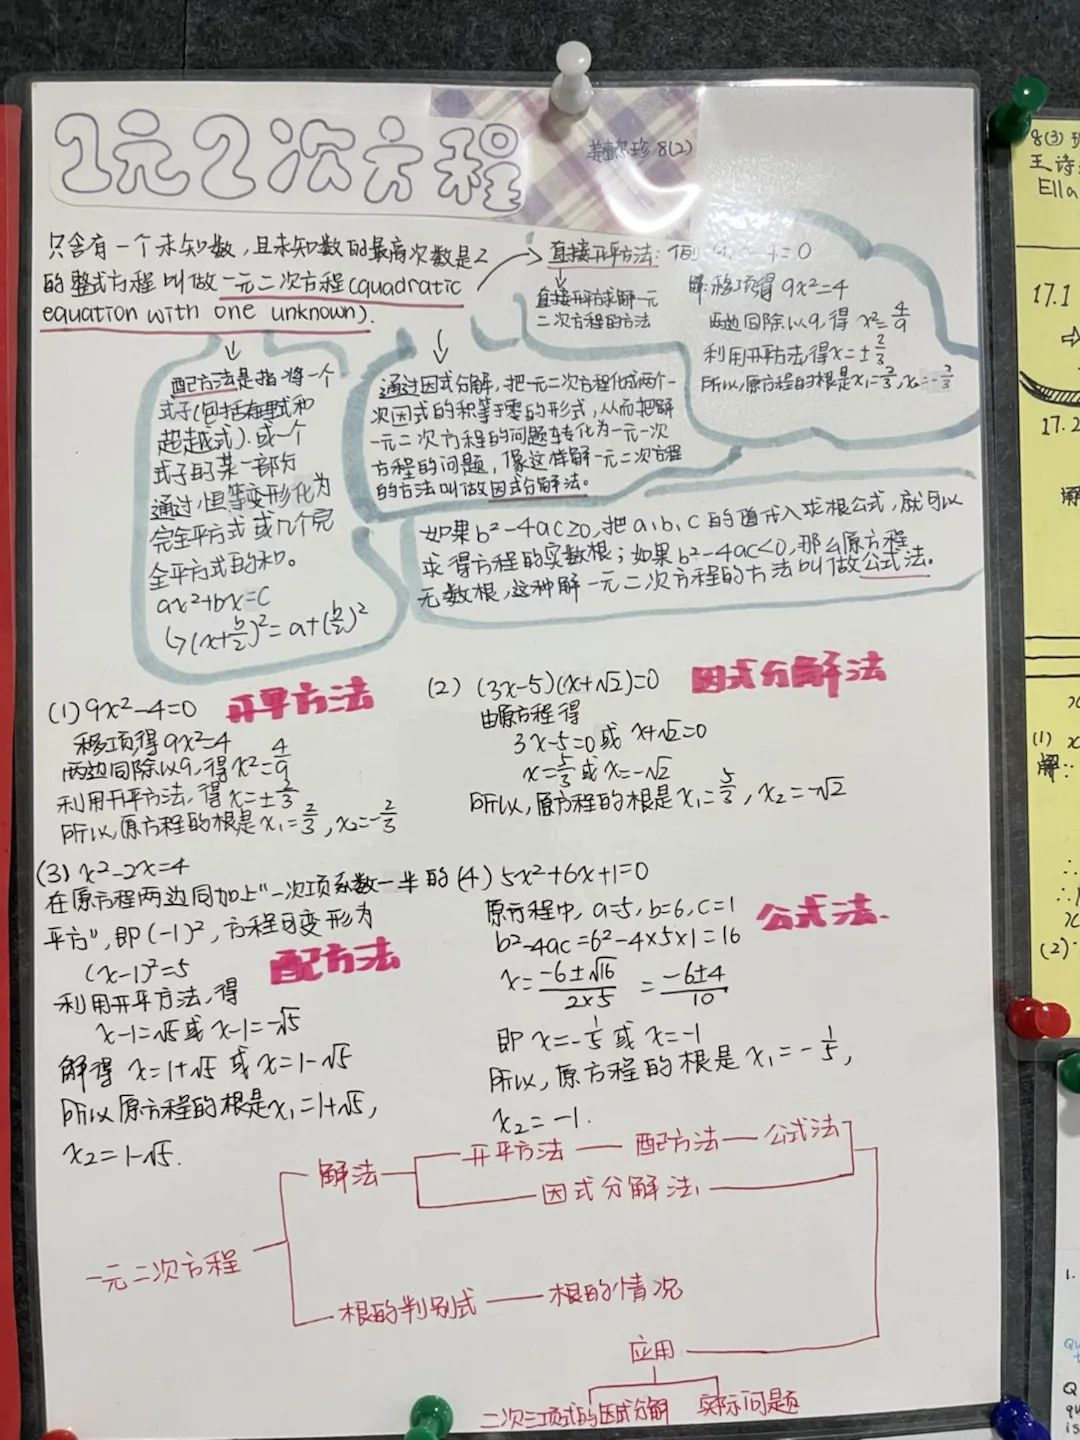 1元2次方程
8(2)
只含有一个未知数,且未知数的最高次数是2
的整式方程叫做一元二次方程(quadratic
equation with one unknown).
直接开平方法:
直接开平求解一元
二次方程的方法
4=0
解:移项得 9x²=4
两边同除以9,得 x²=4/9
利用开平方法,得x=±2/3
所以,原方程的根是x₁=2/3,x₂=-2/3
配方法是指将一个
式子(包括有理式和
超越式).或一个
式子的某一部分
通过恒等变形化为
完全平方式或几个完
全平方式的和。
ax²+bx=c
↳(x+b/2)²=a+(b/2)²
通过因式分解,把一元二次方程化成两个一
次因式的积等于零的形式,从而把解
一元二次方程的问题转化为一元一次
方程的问题,像这样解一元二次方程
的方法叫做因式分解法。
如果b²-4ac≥0,把a、b、c的值代入求根公式,就可以
求得方程的实数根;如果b²-4ac<0,那么原方程
无数根,这种解一元二次方程的方法叫做公式法。
(1) 9x²-4=0 开平方法
移项,得9x²=4
两边同除以9,得x²=4/9
利用开平方法,得x=±2/3
所以,原方程的根是x₁=2/3,x₂=-2/3
(2) (3x-5)(x+√2)=0 因式分解法
由原方程得
3x-5=0或 x+√2=0
x=5/3或x=-√2
所以,原方程的根是x₁=5/3,x₂=-√2
(3) x²-2x=4
在原方程两边同加上"一次项系数一半的
平方",即(-1)²,方程可变形为
(x-1)²=5 配方法
利用开平方法,得
x-1=√5或x-1=-√5
解得 x=1+√5 或x=1-√5
所以原方程的根是x₁=1+√5,
x₂=1-√5.
(4) 5x²+6x+1=0
原方程中, a=5, b=6, c=1 公式法.
b²-4ac=6²-4×5×1=16
x=(-6±√16)/(2×5) =(-6±4)/10
即 x=-1/5或 x=-1
所以,原方程的根是x₁=-1/5,
x₂=-1.
一元二次方程
解法
开平方法 — 配方法 — 公式法
因式分解法
根的判别式 — 根的情况
应用
二次三项式的因式分解 实际问题
8(3)
王诗
Ella
17.1
17.2
解
(1)
解:
(2)
1.
Q